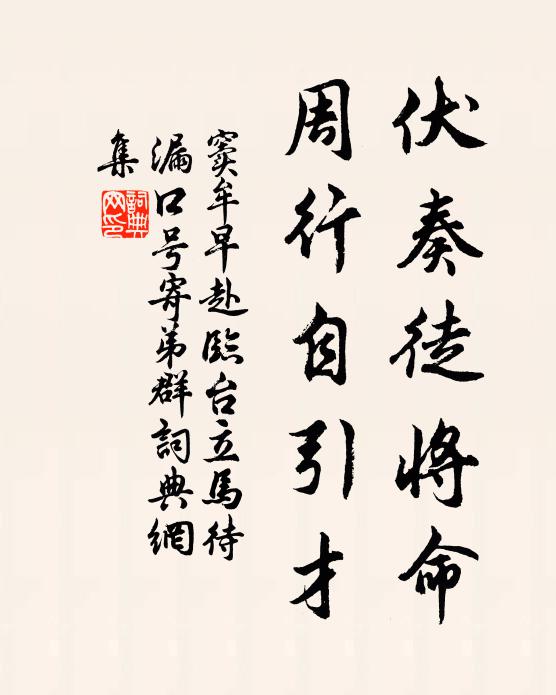 伏奏徒將命
周行自引才
竇牟早赴臨台立馬待
漏口号寄弟群詞典網
集
詞典
网印